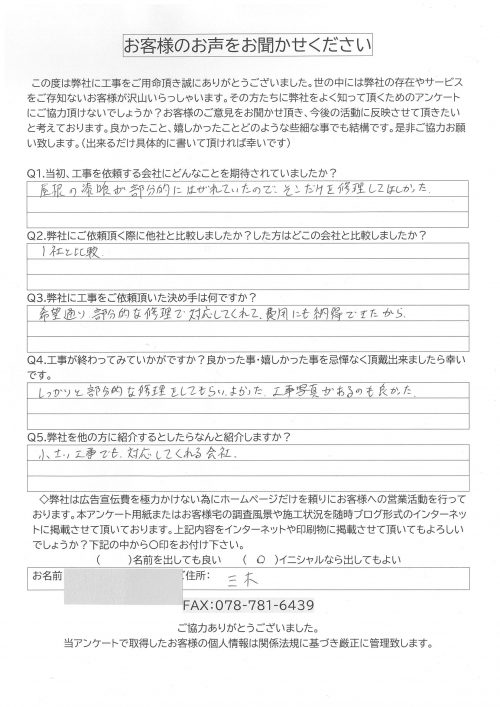 お客様のお声をお聞かせください
この度は弊社に工事をご用命頂き誠にありがとうございました。世の中には弊社の存在やサービス
をご存知ないお客様が沢山いらっしゃいます。その方たちに弊社をよく知って頂くためのアンケート
にご協力頂けないでしょうか？お客様のご意見をお聞かせ頂き、今後の活動に反映させて頂きたい
と考えております。良かったこと、嬉しかったことどのような些細な事でも結構です。是非ご協力お願
い致します。（出来るだけ具体的に書いて頂ければ幸いです）
Q1.当初、工事を依頼する会社にどんなことを期待されていましたか？
屋根の漆喰が部分的にはがれていたので、そこだけを修理してほしかった
Q2.弊社にご依頼頂く際に他社と比較しましたか？した方はどこの会社と比較しましたか？
1社と比較
Q3.弊社に工事をご依頼頂いた決め手は何ですか？
希望通り部分的な修理で対応してくれて、費用にも納得できたから
Q4.工事が終わってみていかがですか？良かった事・嬉しかった事を忌憚なく頂戴出来ましたら幸い
です。
しっかりと部分的な修理をしてもらい、よかった。工事写真があるのも良かった。
Q5.弊社を他の方に紹介するとしたらなんと紹介しますか？
小さい工事でも、対応してくれる会社。
◇弊社は広告宣伝費を極力かけない為にホームページだけを頼りにお客様への営業活動を行って
おります。本アンケート用紙またはお客様宅の調査風景や施工状況を随時ブログ形式のインターネッ
トに掲載させて頂いております。上記内容をインターネットや印刷物に掲載させて頂いてもよろしい
でしょうか？下記の中から〇印をお付け下さい。
（　　）名前を出しても良い　（ 〇 ）イニシャルなら出してもよい
お名前　ご住所：　三木
FAX：078-781-6439
ご協力ありがとうございました。
当アンケートで取得したお客様の個人情報は関係法規に基づき厳正に管理致します。